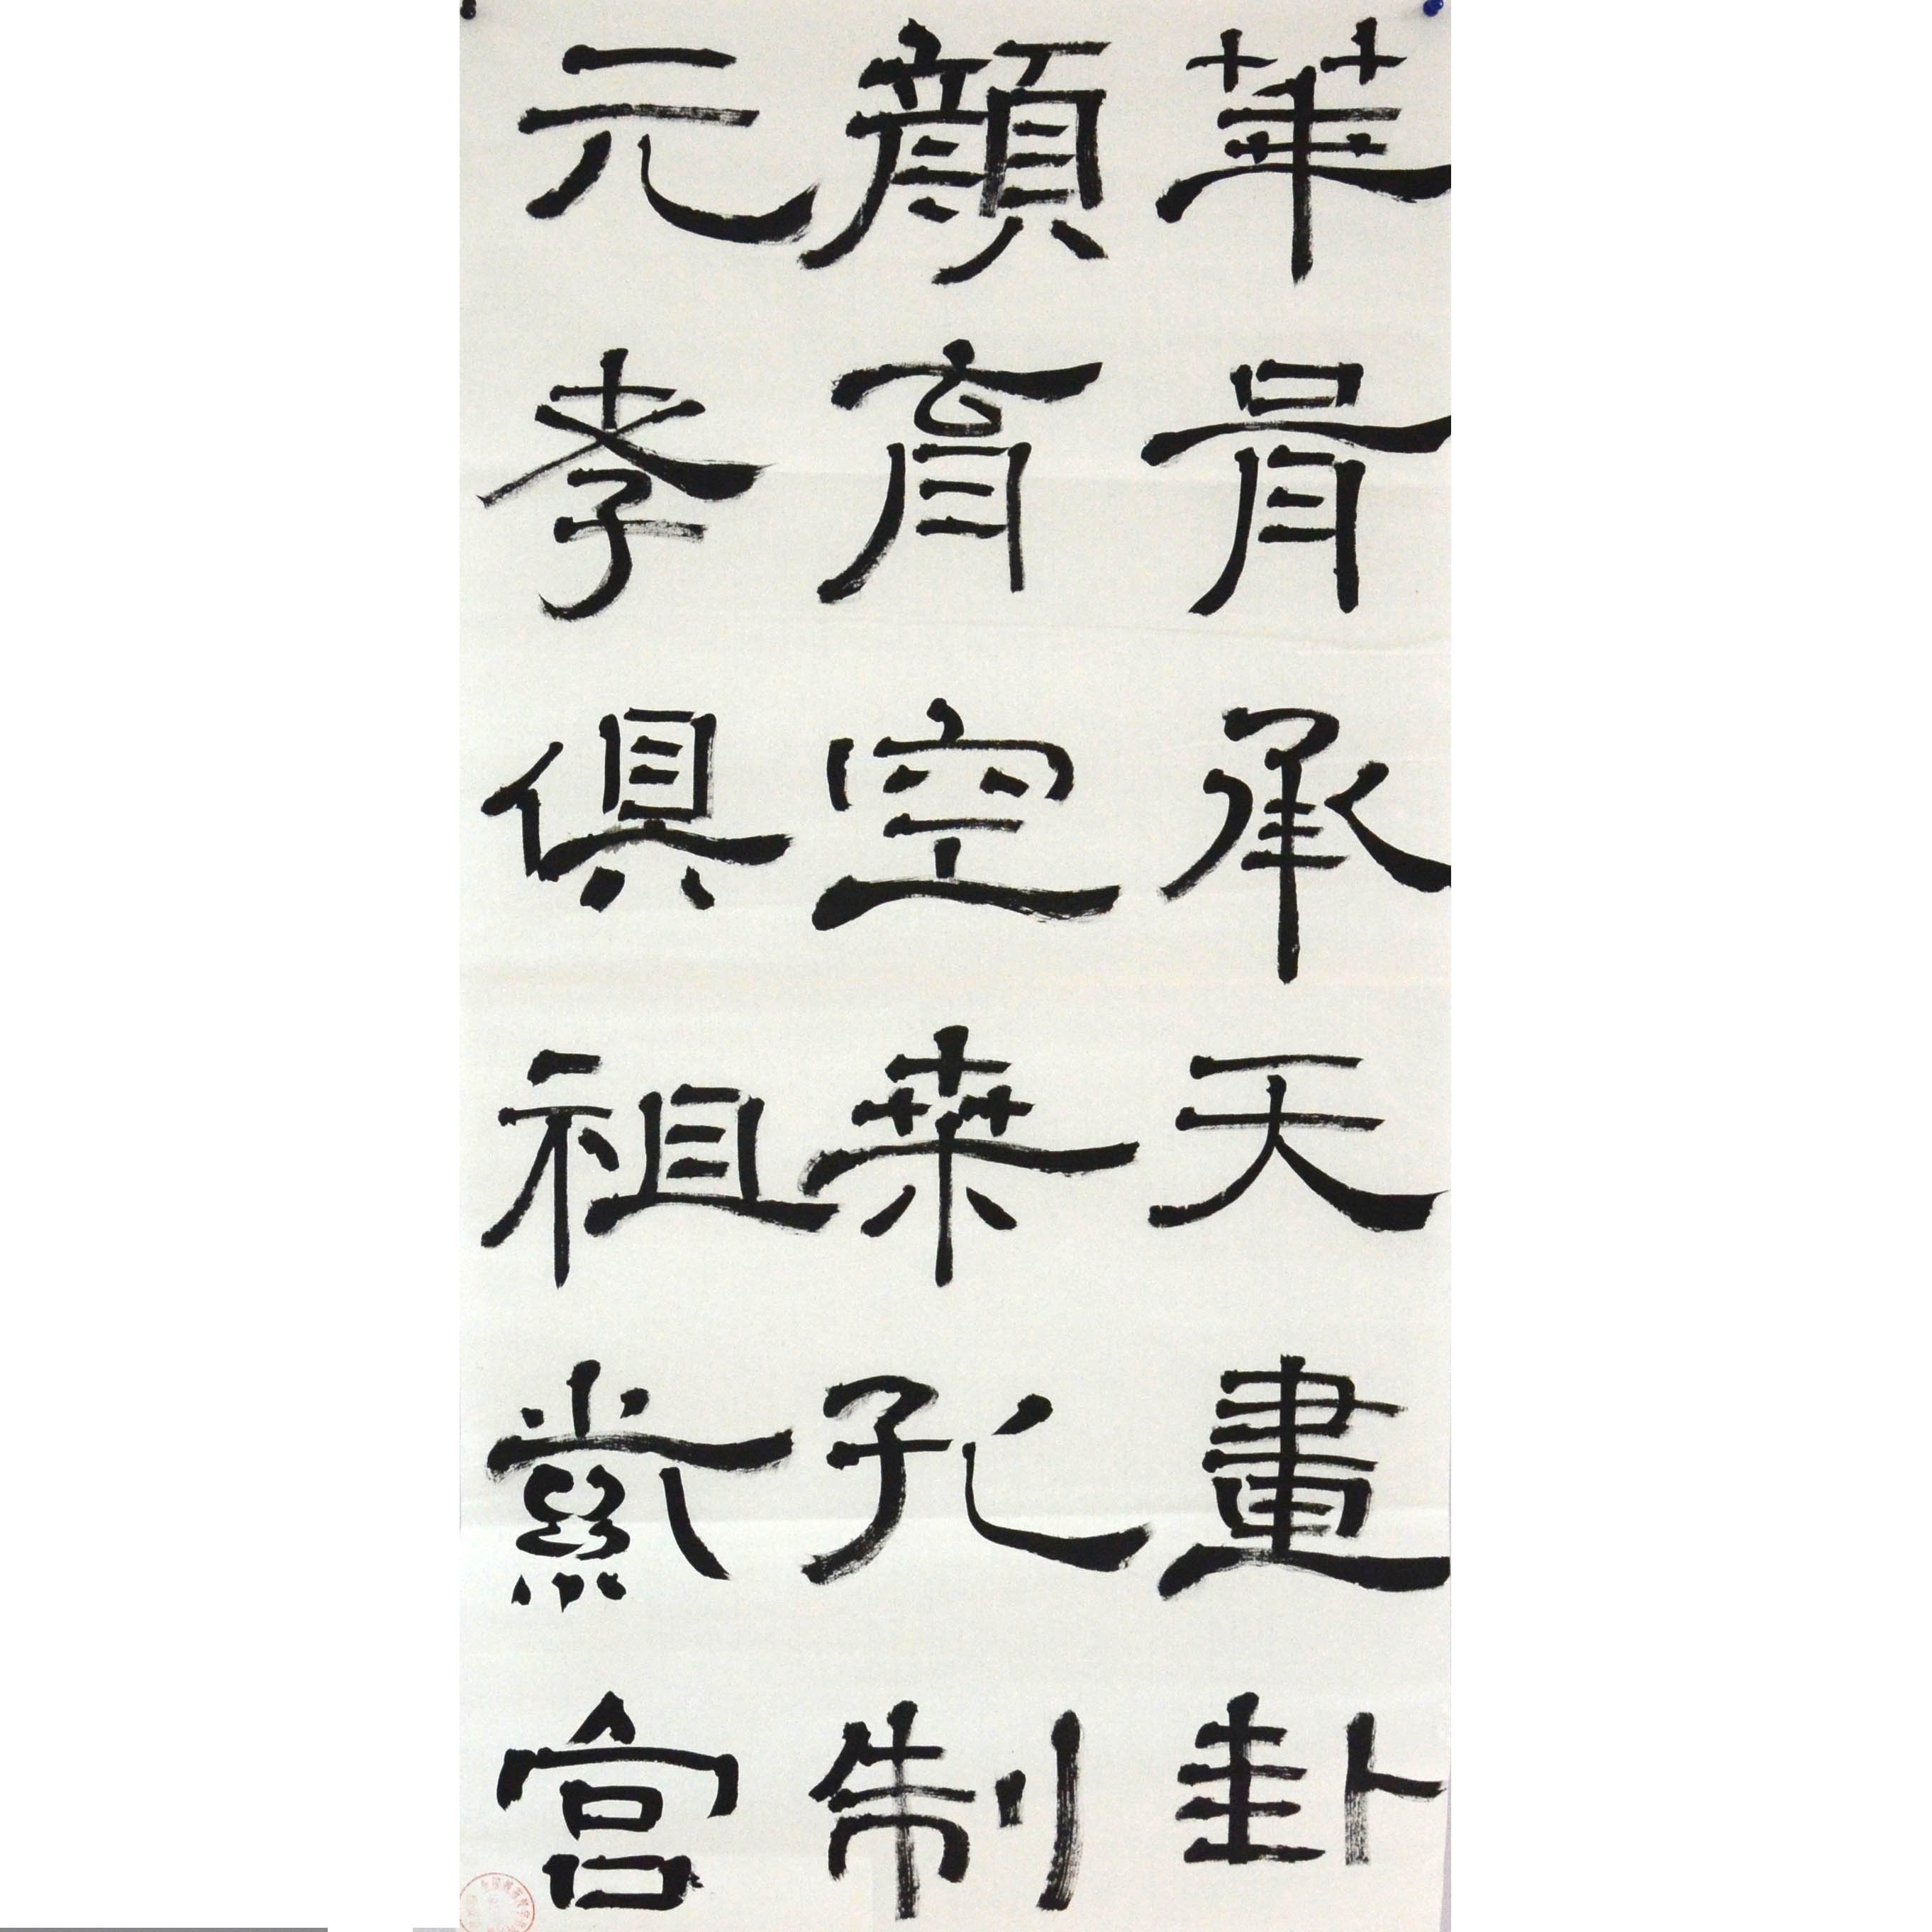 華胥承天畫卦
顏育空桒孔制
元孝俱祖紫宮